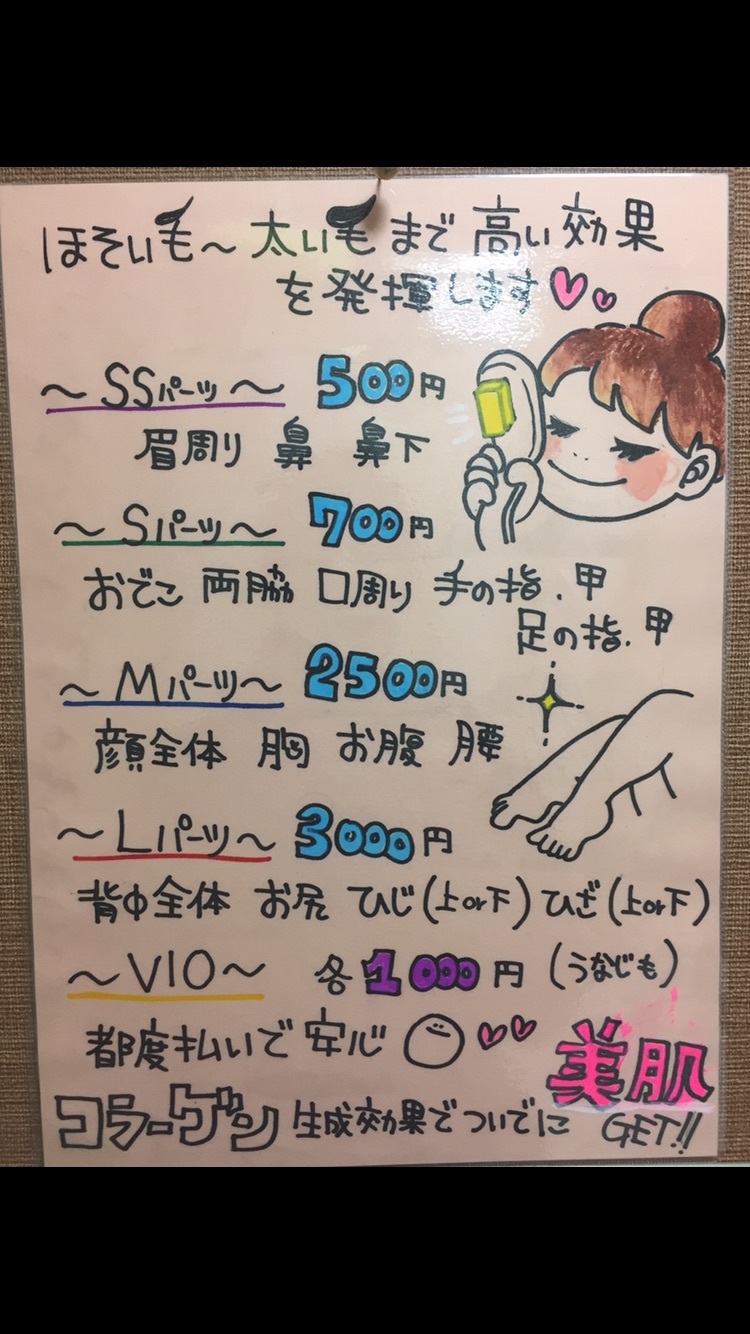 ほそい毛〜太い毛まで高い効果
を発揮します
〜SSパーツ〜 500円
眉周り 鼻 鼻下
〜Sパーツ〜 700円
おでこ 両脇 口周り 手の指.甲
足の指.甲
〜Mパーツ〜 2500円
顔全体 胸 お腹 腰
〜Lパーツ〜 3000円
背中全体 お尻 ひじ(上or下) ひざ(上or下)
〜VIO〜 各1000円 (うなじも)
都度払いで安心
美肌
コラーゲン生成効果でついでに GET!!